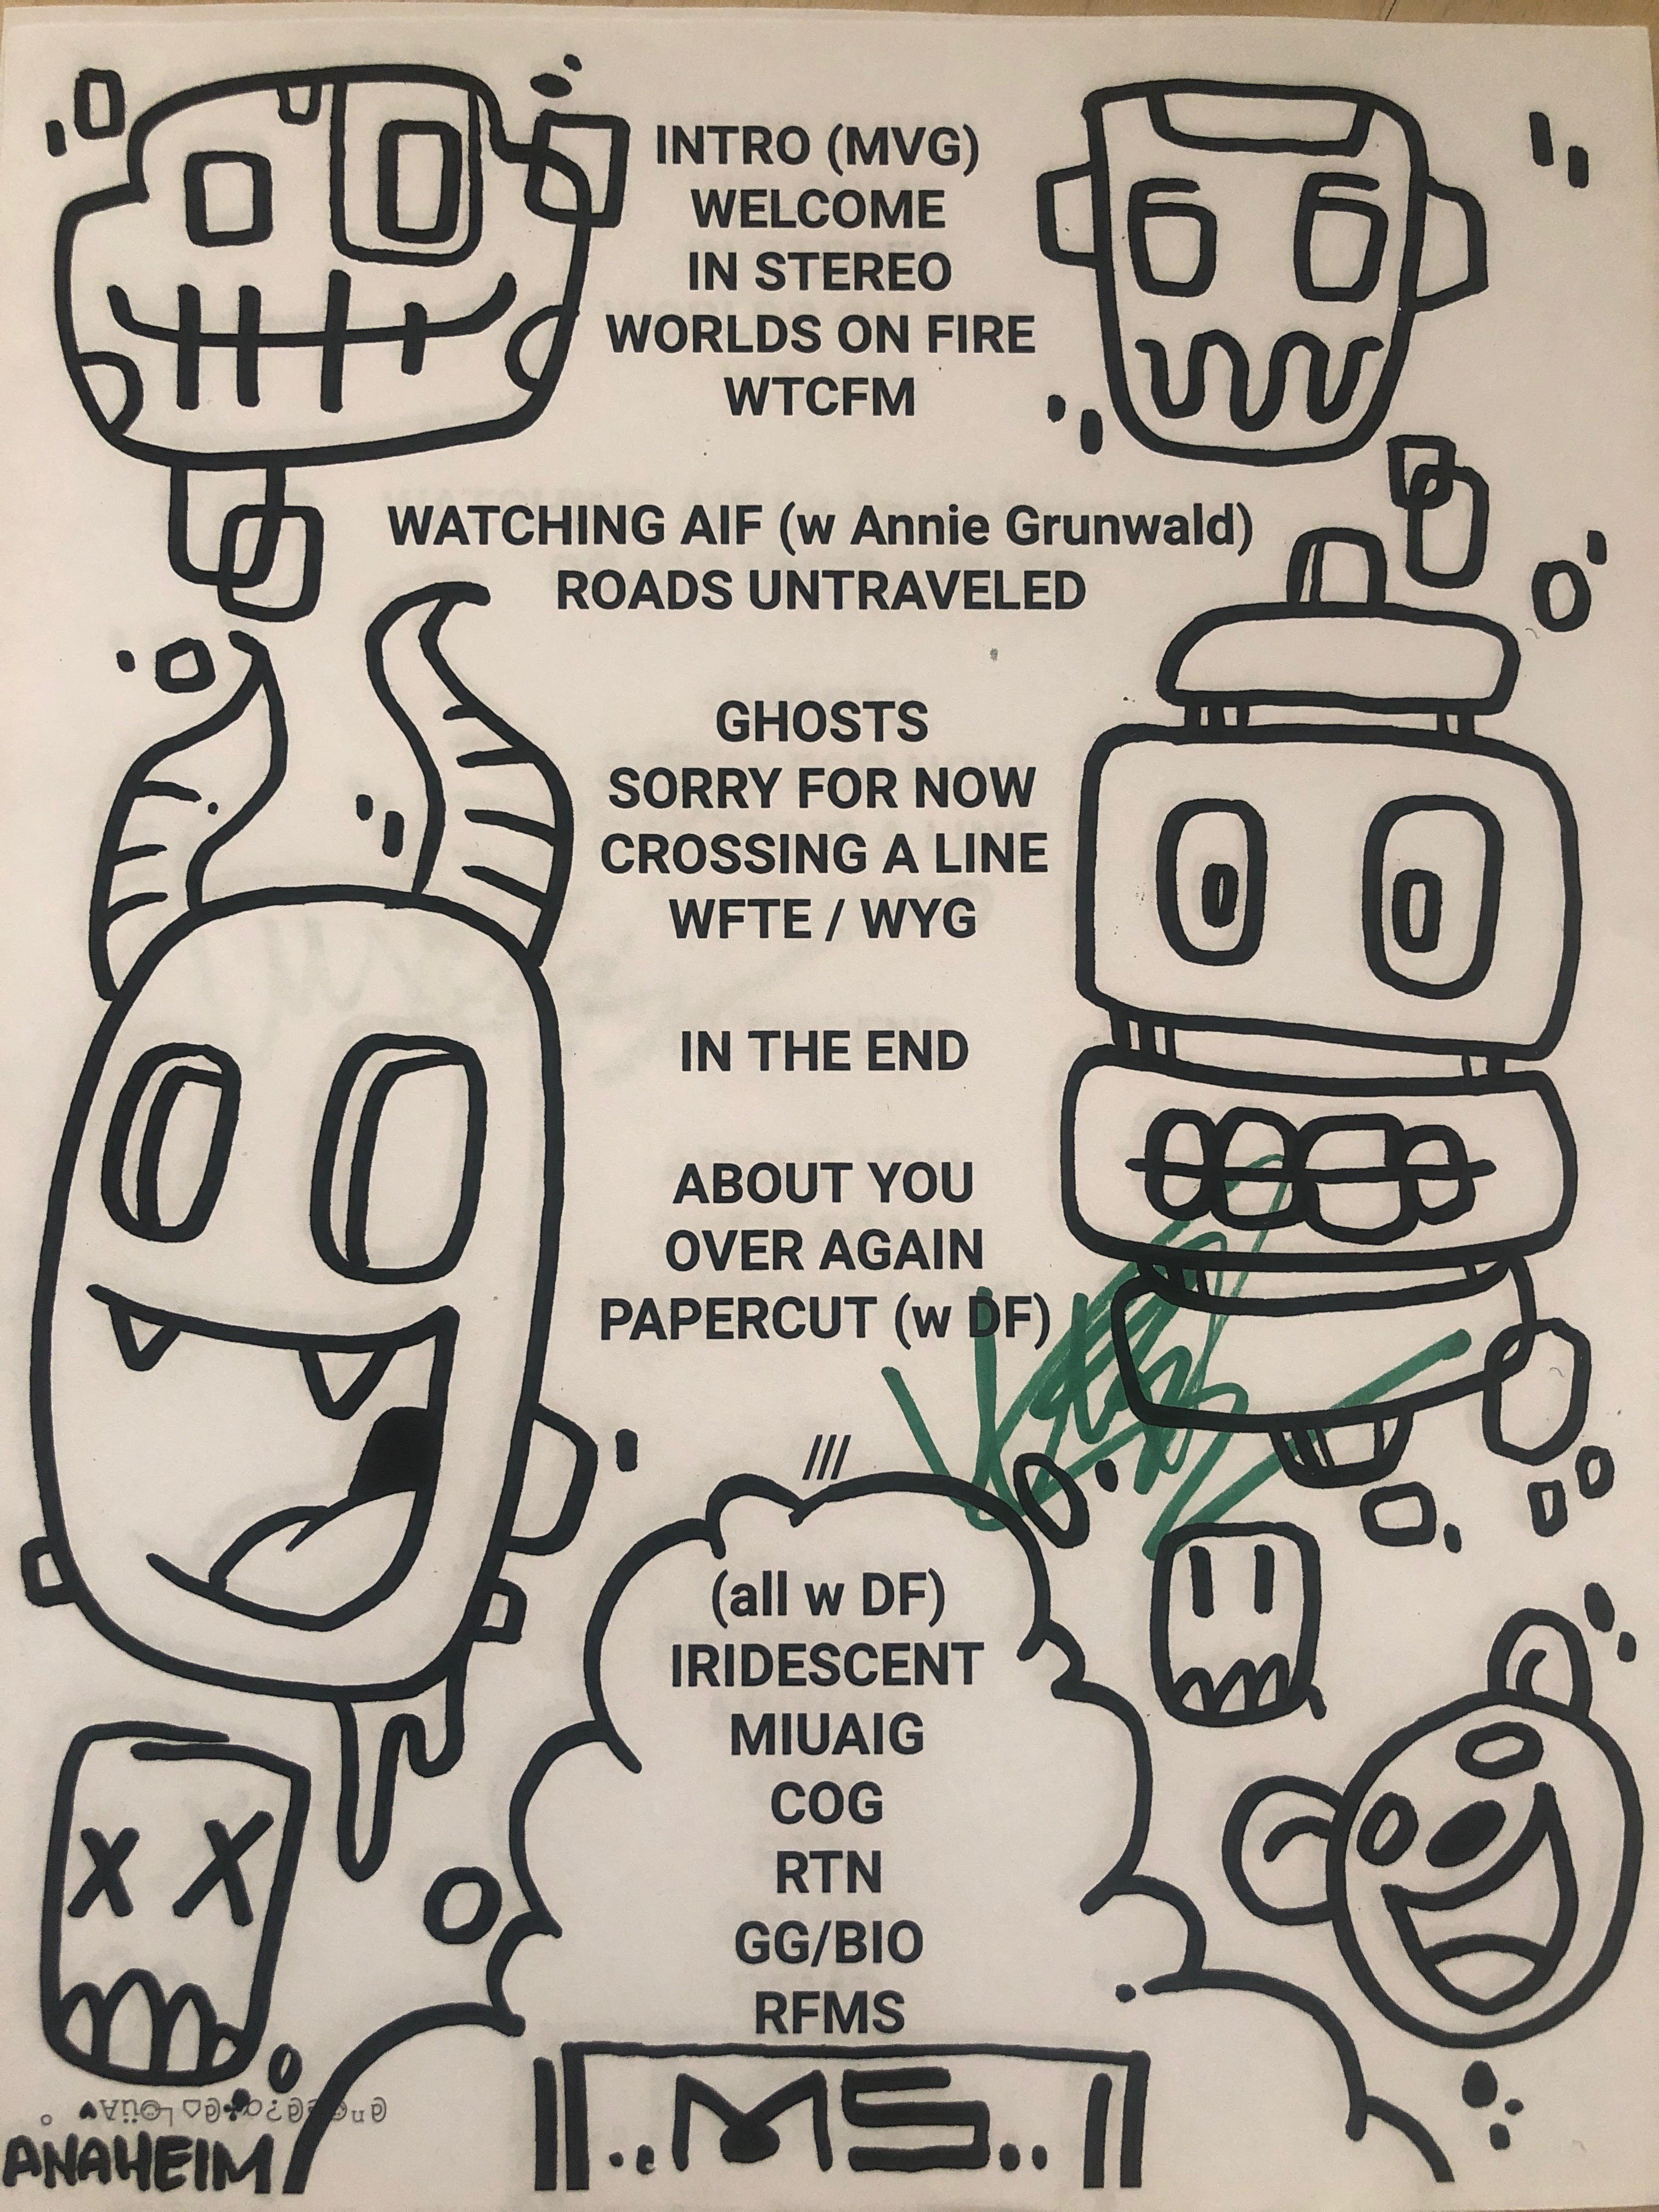 INTRO (MVG)
WELCOME
IN STEREO
WORLDS ON FIRE
WTCFM
WATCHING AIF (w Annie Grunwald)
ROADS UNTRAVELED
GHOSTS
SORRY FOR NOW
CROSSING A LINE
WFTE / WYG
IN THE END
ABOUT YOU
OVER AGAIN
PAPERCUT (w DF)
///
(all w DF)
IRIDESCENT
MIUAIG
COG
RTN
GG/BIO
RFMS
..MS..
ANAHEIM